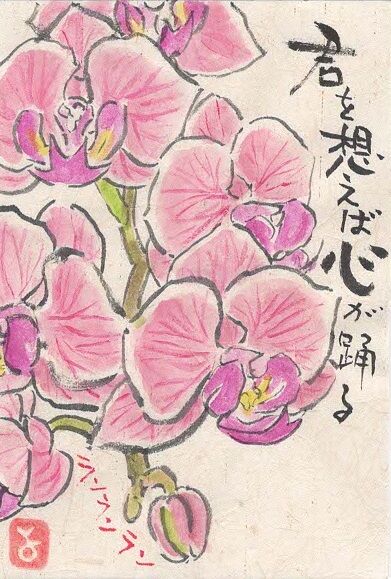 君を想えば心が踊る
ランランラン